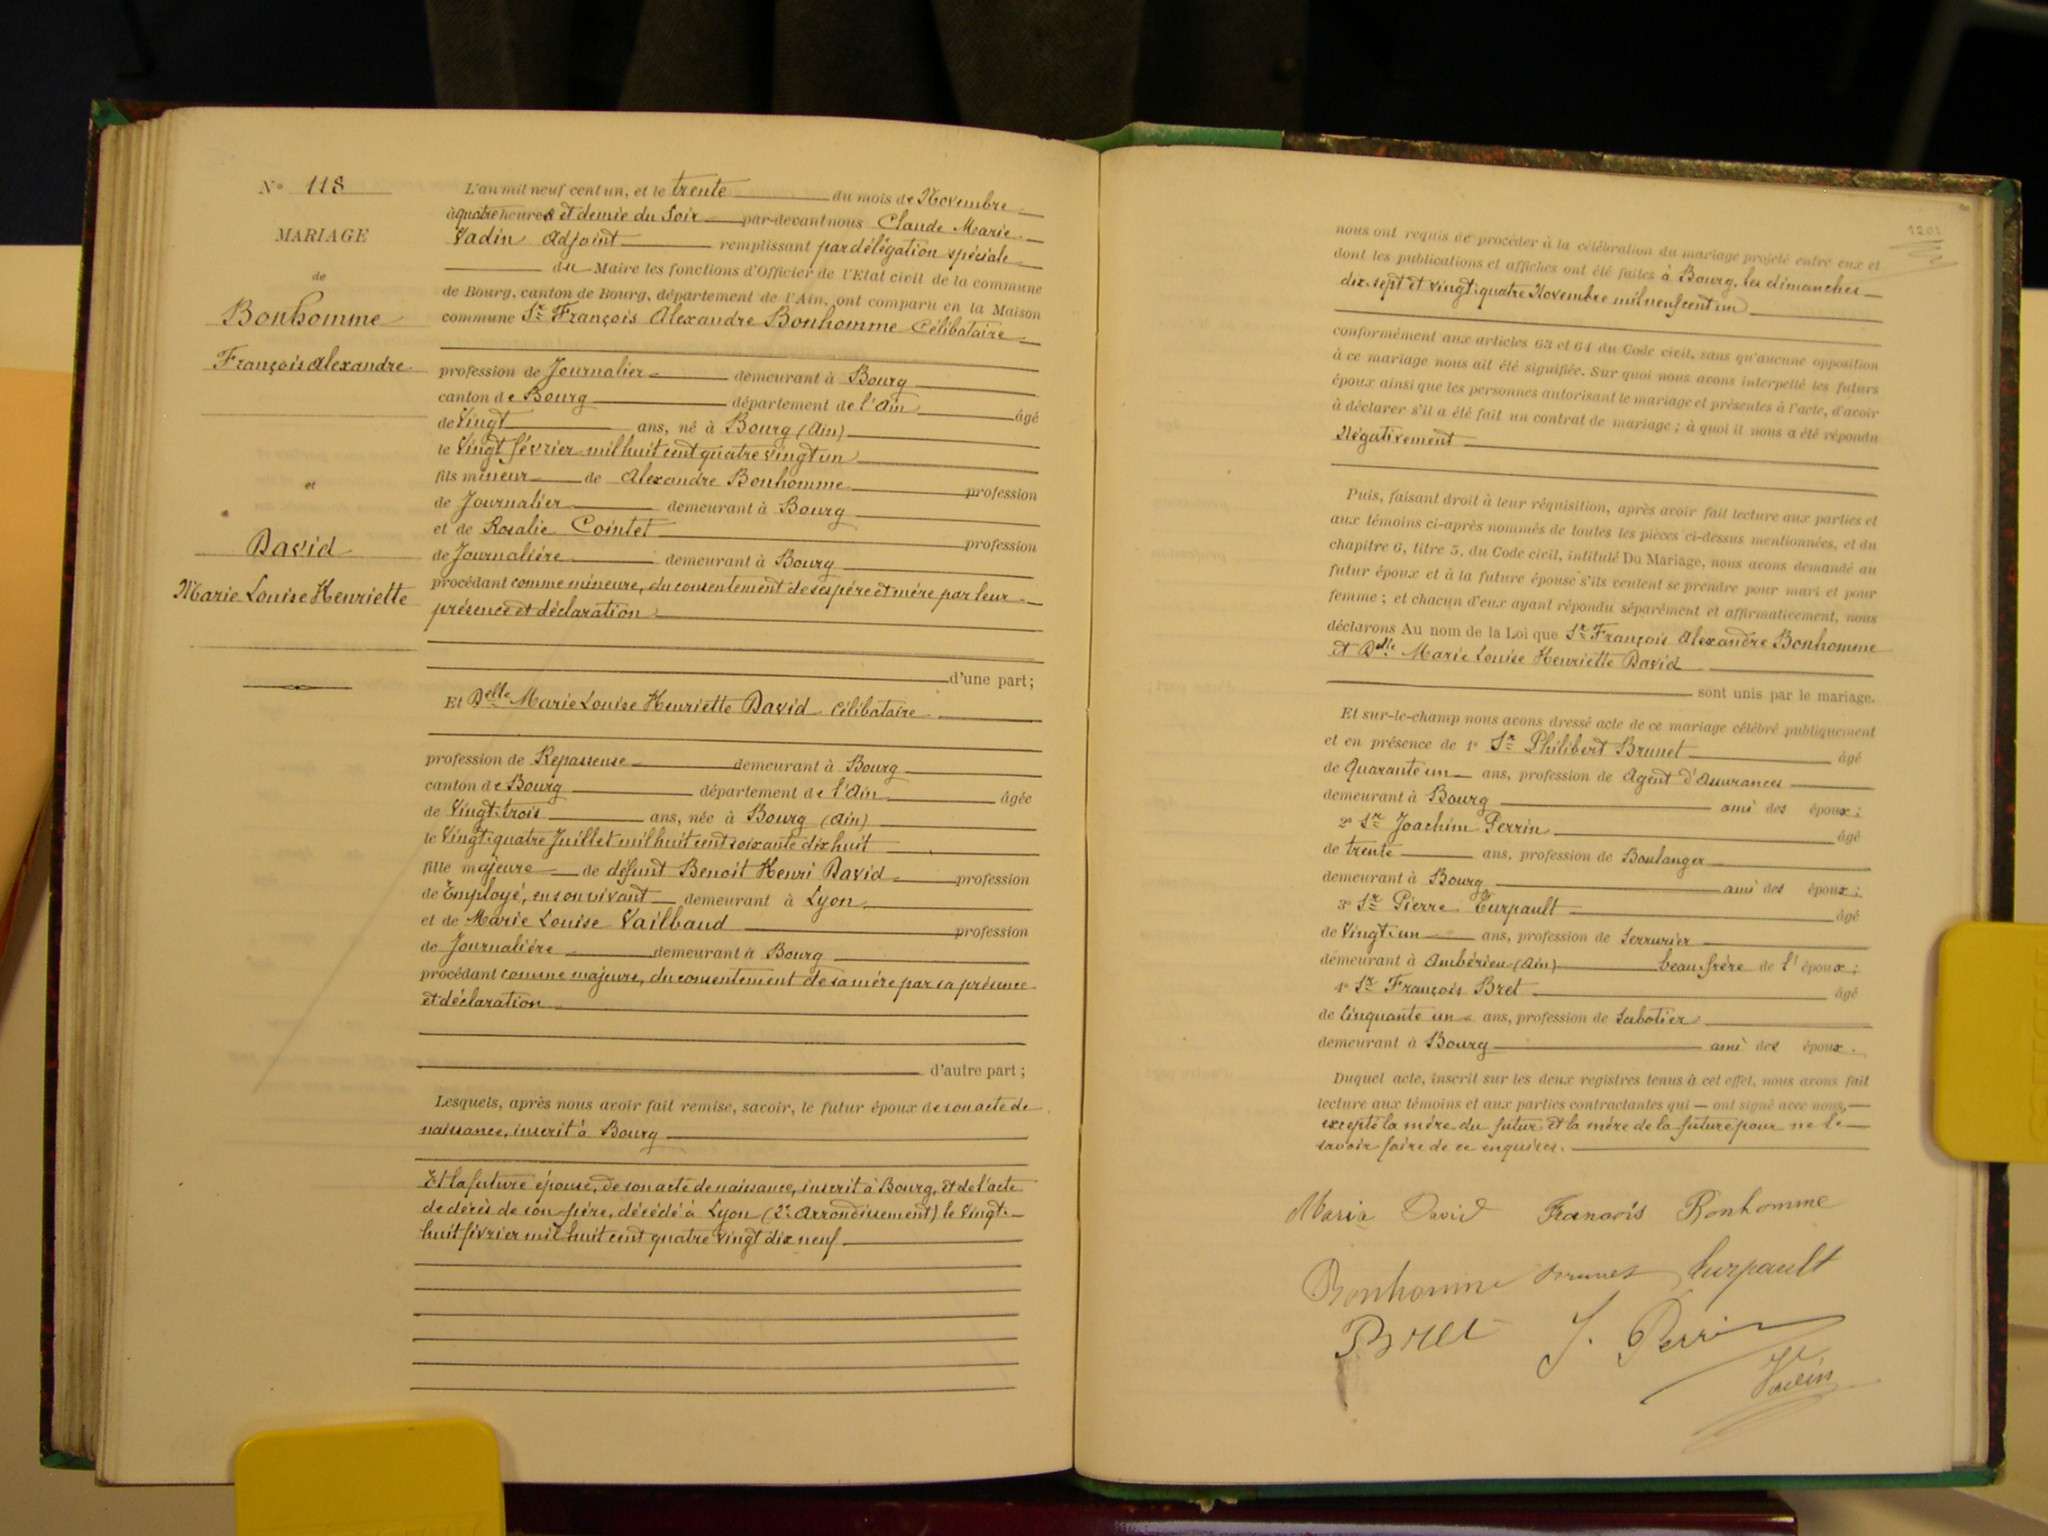 N° 118
MARIAGE
de
Bonhomme
François Alexandre
et
David
Marie Louise Henriette
L'an mil neuf cent un, et le trente du mois de Novembre
à quatre heures et demie du soir par-devant nous Claude Marie
Vadin Adjoint remplissant par délégation spéciale
du Maire les fonctions d'Officier de l'Etat civil de la commune
de Bourg, canton de Bourg, département de l'Ain, ont comparu en la Maison
commune Sr François Alexandre Bonhomme Célibataire
profession de Journalier demeurant à Bourg
canton de Bourg département de l'Ain âgé
de Vingt ans, né à Bourg (Ain)
le Vingt février mil huit cent quatre vingt un
fils mineur de Alexandre Bonhomme profession
de Journalier demeurant à Bourg
et de Rosalie Cointet profession
de Journalière demeurant à Bourg
procédant comme mineure, du consentement de ses père et mère par leur
présence et déclaration
d'une part;
Et Delle Marie Louise Henriette David célibataire
profession de Repasseuse demeurant à Bourg
canton de Bourg département de l'Ain âgée
de Vingt-trois ans, née à Bourg (Ain)
le Vingt-quatre Juillet mil huit cent soixante dix huit
fille majeure de défunt Benoit Henri David profession
de Employé, en son vivant demeurant à Lyon
et de Marie Louise Vailbaud profession
de Journalière demeurant à Bourg
procédant comme majeure, du consentement de sa mère par sa présence
et déclaration
d'autre part;
Lesquels, après nous avoir fait remise, savoir, le futur époux de son acte de
naissance, inscrit à Bourg
Et la future épouse, de son acte de naissance, inscrit à Bourg, et de l'acte
de décès de son père, décédé à Lyon (2e Arrondissement) le Vingt-
huit février mil huit cent quatre vingt dix neuf
nous ont requis de procéder à la célébration du mariage projeté entre eux et
dont les publications et affiches ont été faites à Bourg, les dimanches
dix-sept et vingt-quatre Novembre mil neuf cent un
conformément aux articles 63 et 64 du Code civil, sans qu'aucune opposition
à ce mariage nous ait été signifiée. Sur quoi nous avons interpellé les futurs
époux ainsi que les personnes autorisant le mariage et présentes à l'acte, d'avoir
à déclarer s'il a été fait un contrat de mariage; à quoi il nous a été répondu
Négativement
Puis, faisant droit à leur réquisition, après avoir fait lecture aux parties et
aux témoins ci-après nommés de toutes les pièces ci-dessus mentionnées, et du
chapitre 6, titre 5, du Code civil, intitulé Du Mariage, nous avons demandé au
futur époux et à la future épouse s'ils veulent se prendre pour mari et pour
femme; et chacun d'eux ayant répondu séparément et affirmativement, nous
déclarons Au nom de la Loi que Sr François Alexandre Bonhomme
et Delle Marie Louise Henriette David
sont unis par le mariage.
Et sur-le-champ nous avons dressé acte de ce mariage célébré publiquement
et en présence de 1° Sr Philibert Brunet âgé
de Quarante un ans, profession de Agent d'Assurances
demeurant à Bourg ami des époux;
2° Sr Joachim Perrin âgé
de trente ans, profession de Boulanger
demeurant à Bourg ami des époux;
3° Sr Pierre Turpault âgé
de Vingt-un ans, profession de Serrurier
demeurant à Ambérieu (Ain) beau-frère de l'époux;
4° Sr François Bret âgé
de Cinquante un ans, profession de Sabotier
demeurant à Bourg ami des époux.
Duquel acte, inscrit sur les deux registres tenus à cet effet, nous avons fait
lecture aux témoins et aux parties contractantes qui ont signé avec nous,
excepté la mère du futur et la mère de la future pour ne le
savoir faire de ce enquises.
Maria David François Bonhomme
Bonhomme Brunet Turpault
Bret J. Perrin
Vadin